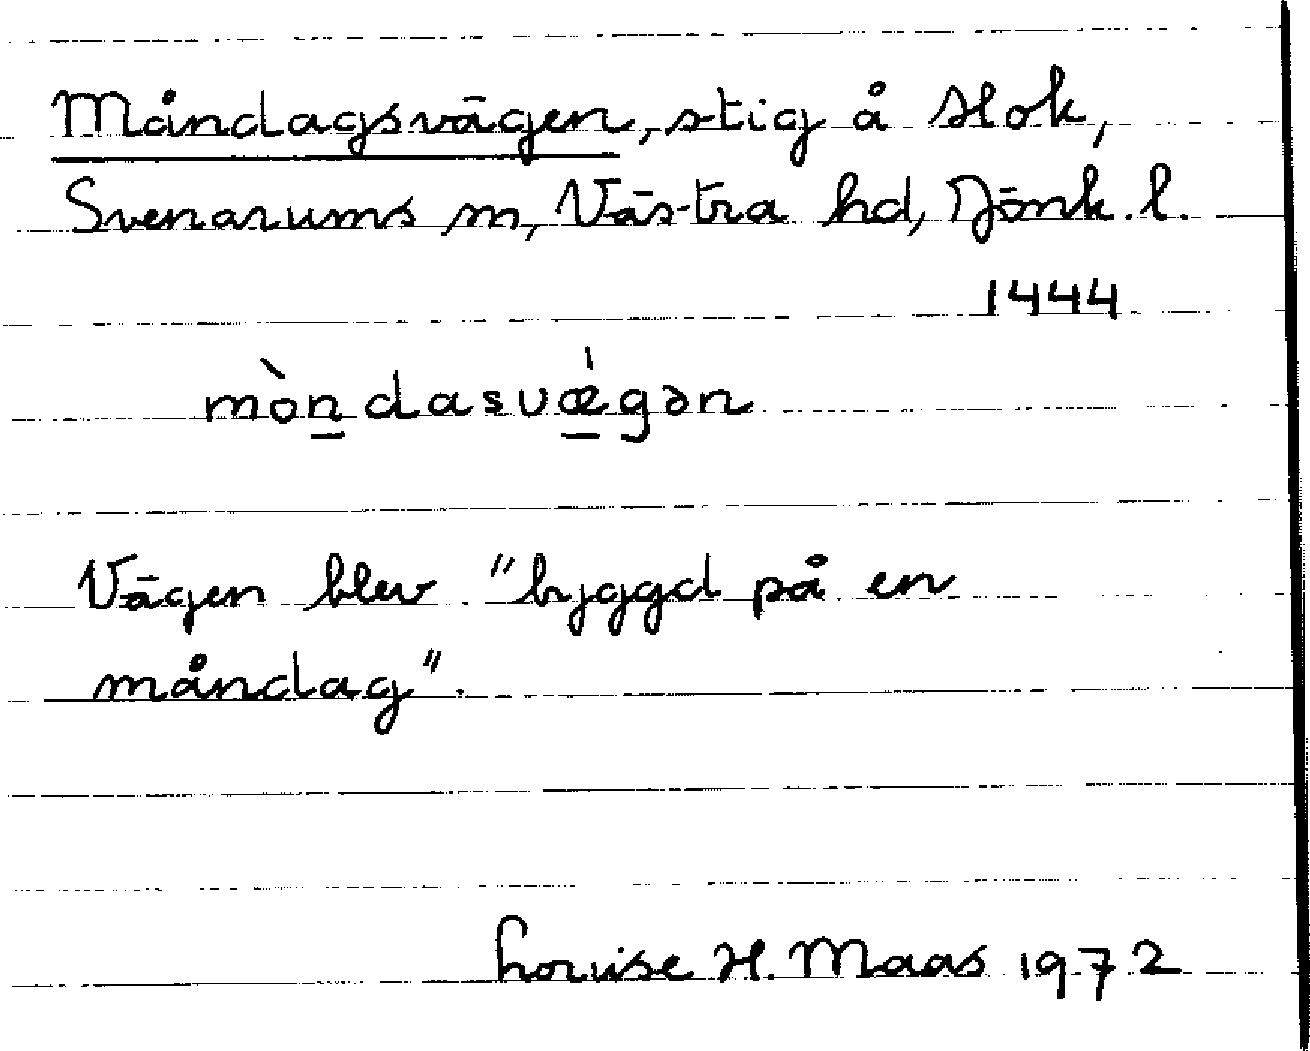 Måndagsvägen, stig å Hok,
Svenarums sn, Västra hd, Jönk. l.
1444
mòn̲dasvǽ̲gən
Vägen blev "byggd på en
måndag".
Louise H. Maas 1972